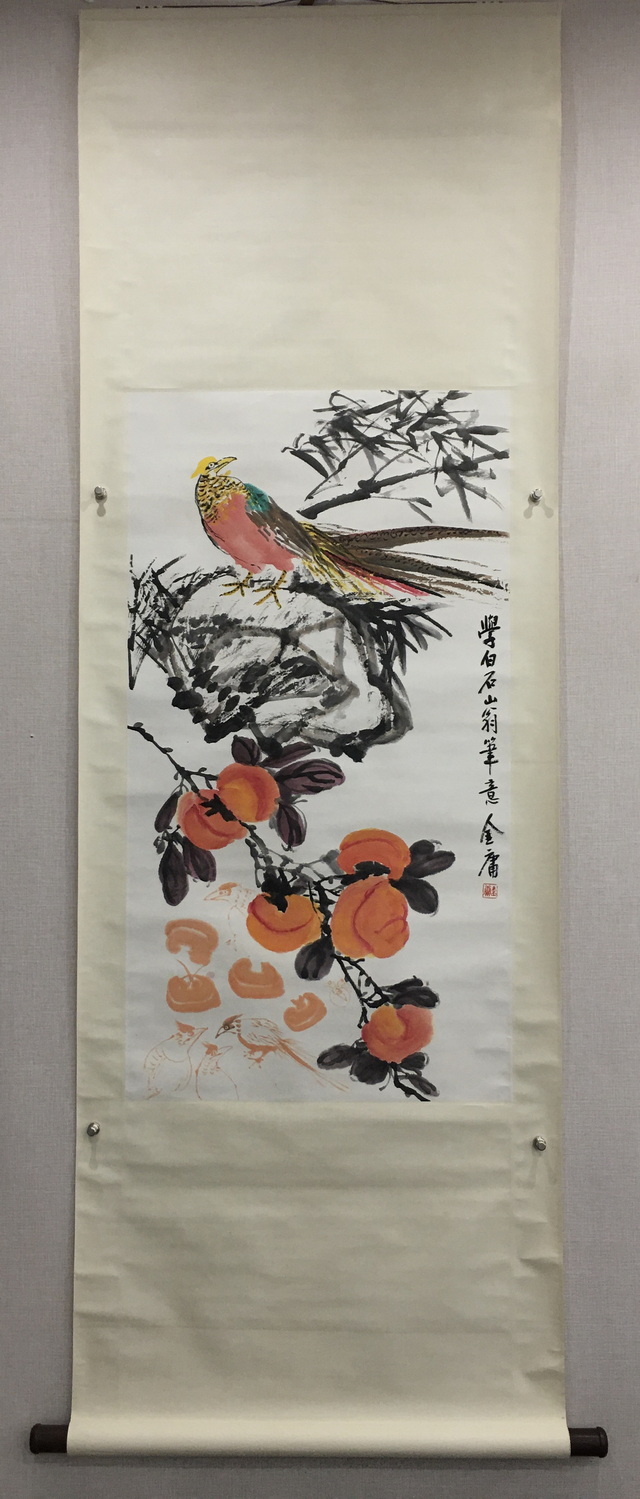 學白石山翁筆意 金庸